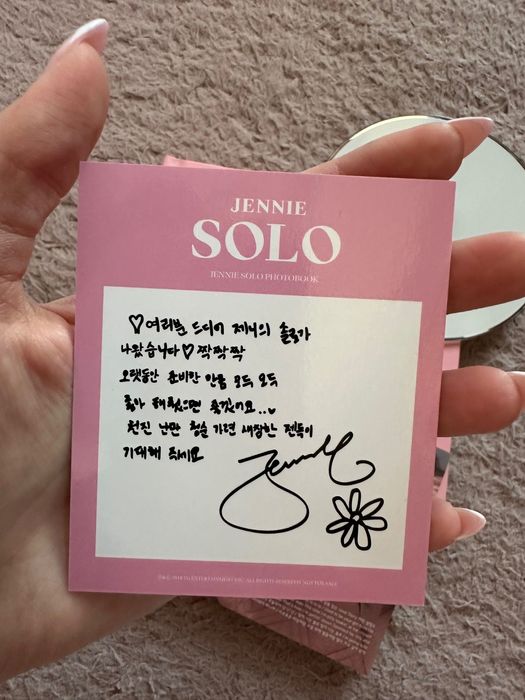 JENNIE
SOLO
JENNIE SOLO PHOTOBOOK
♡여러분 드디어 제니의 솔로가
나왔습니다♡짝짝짝
오랫동안 준비한 만큼 모두 모두
좋아 해줬으면 좋겠어요..
천진 난만 청순 가련 새침한 젠득이
기대해 주세요
Jennie
℗&© 2018 YG ENTERTAINMENT INC. ALL RIGHTS RESERVED. NOT FOR SALE